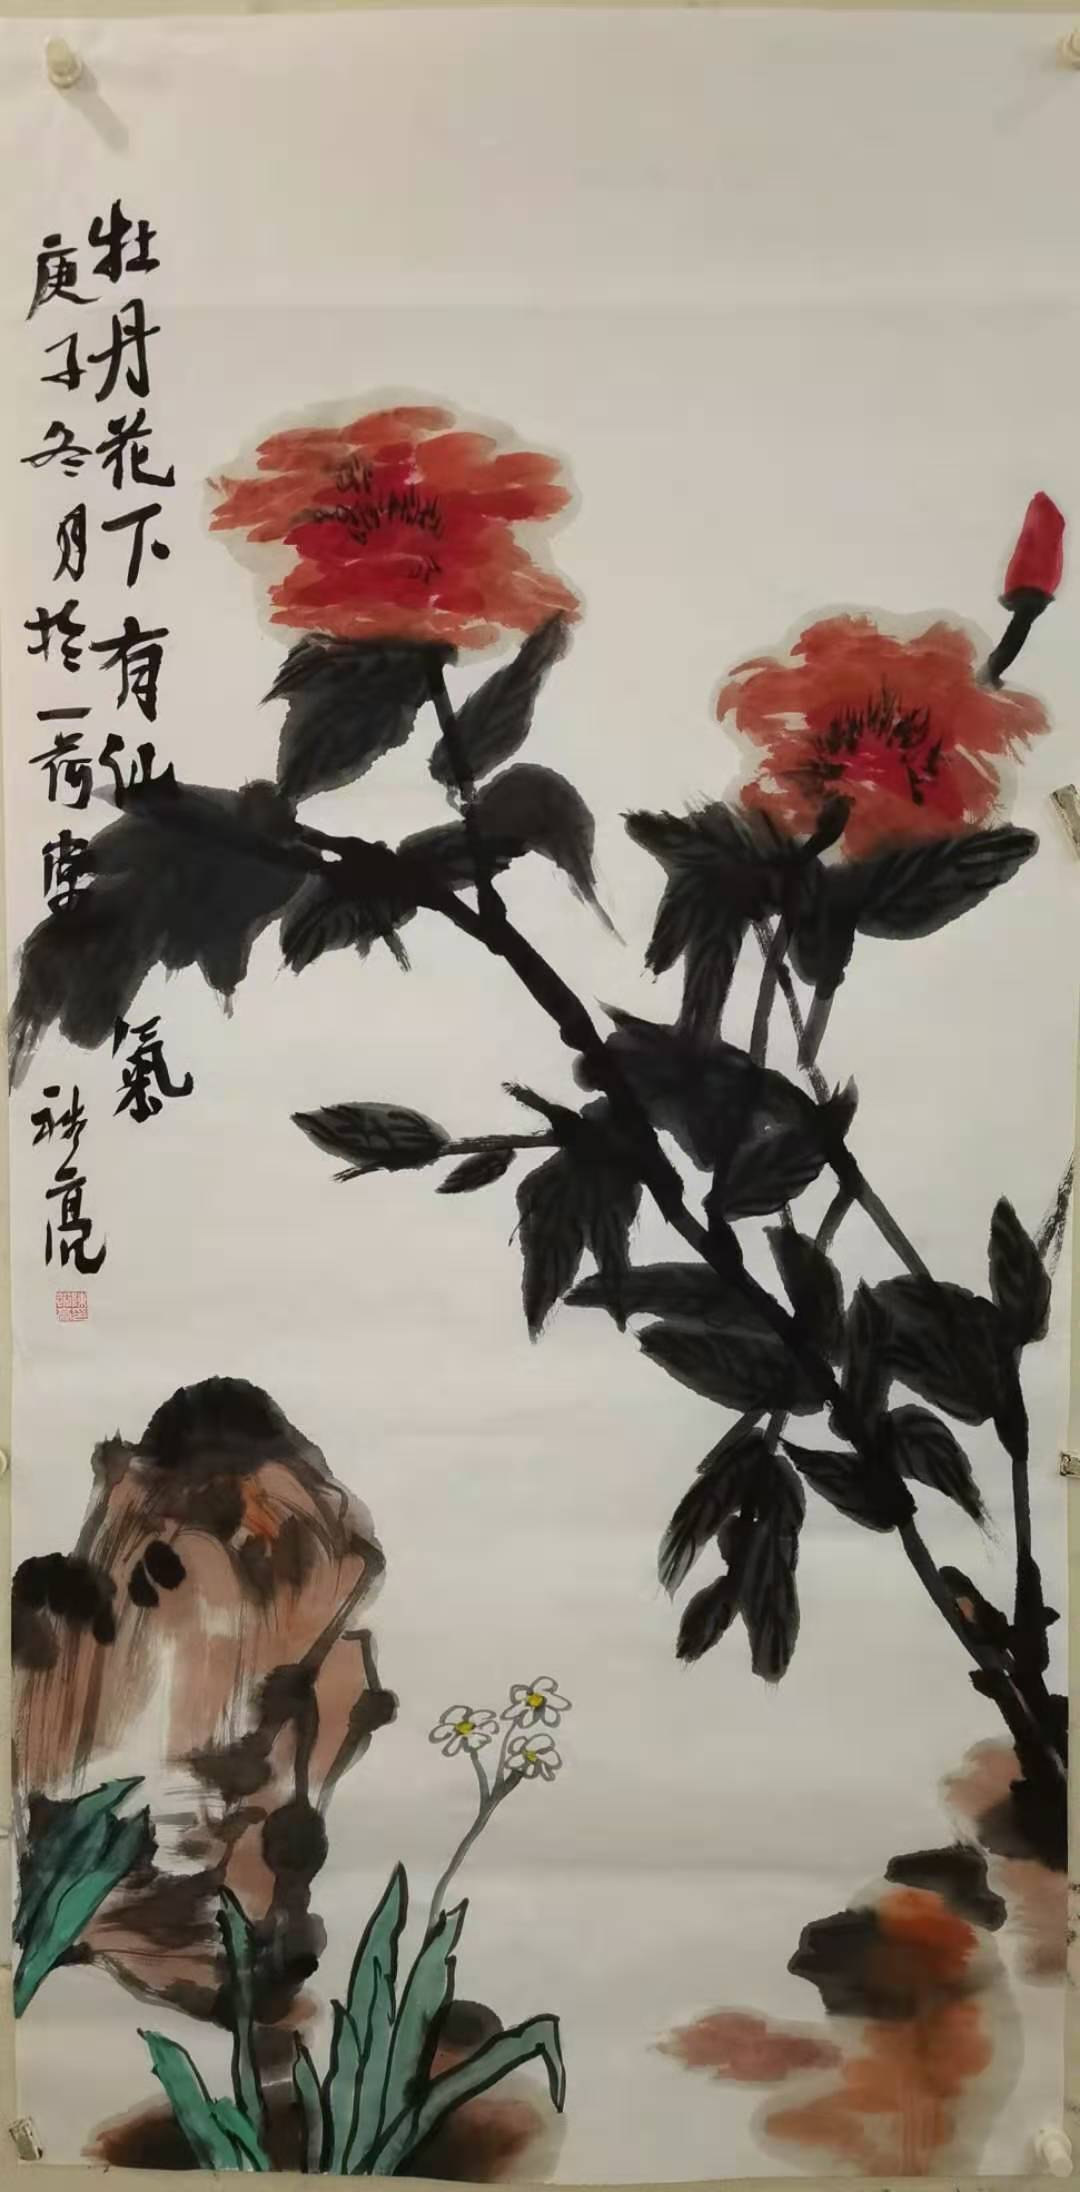 牡丹花下有仙氣
庚子冬月於一荷堂 詩亮